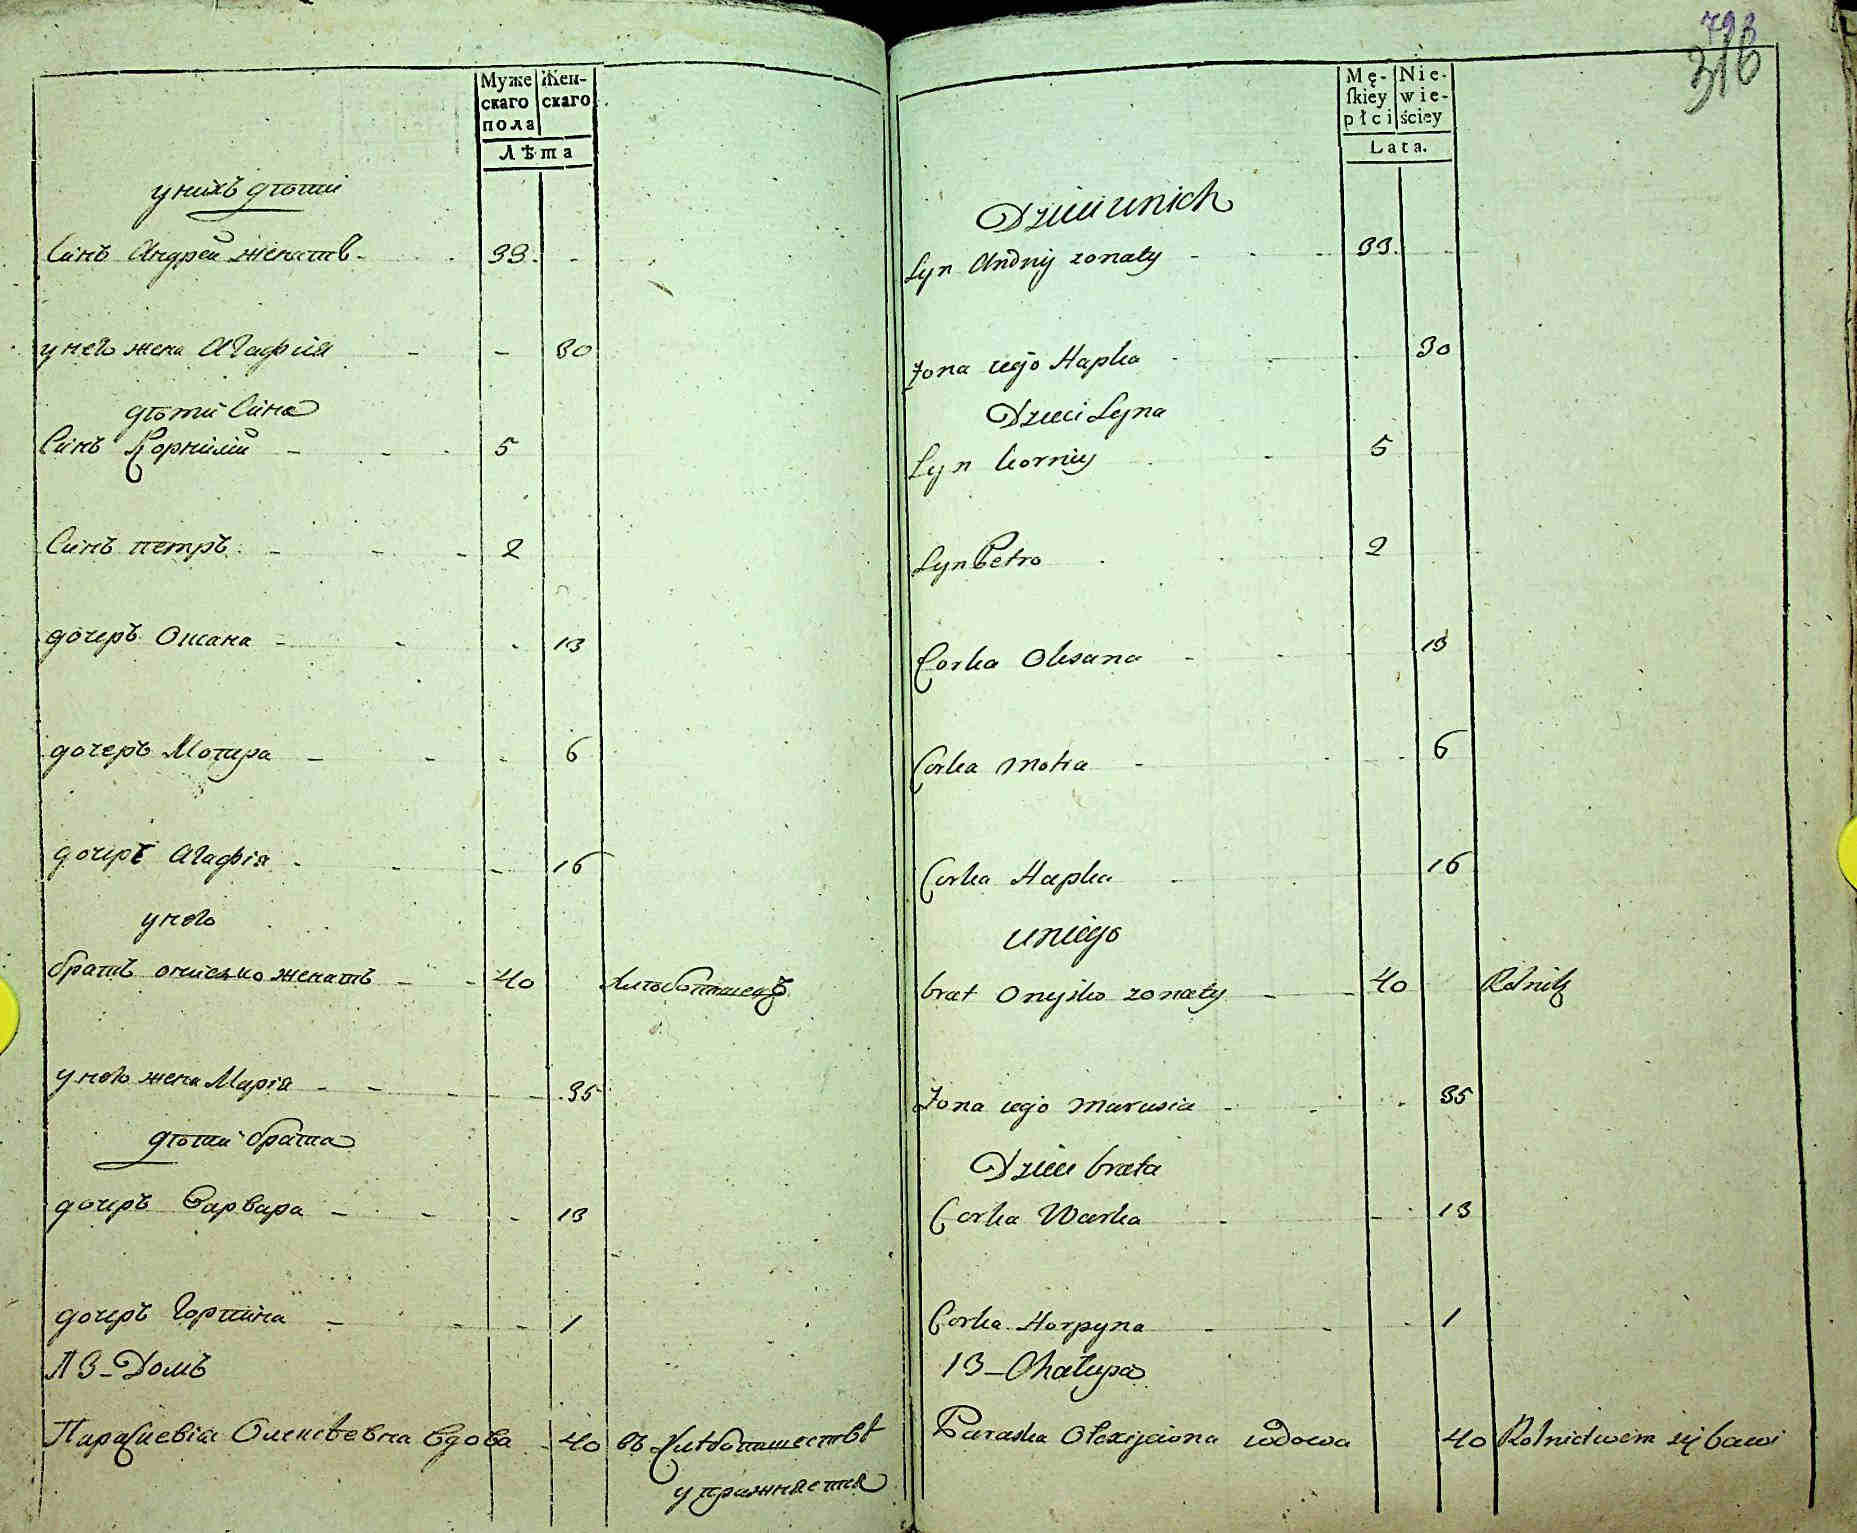 Муже Жен-
скаго скаго
пола
Лѣта
у нихъ дѣти
Синъ Андрей женатъ 33
у него жена Агафия 30
дѣти Сина
Синъ Корнилий 5
Синъ петръ 2
дочеръ Оксана 13
дочеръ Мотира 6
дочеръ Агафія 16
у него
братъ онисько женатъ 40 хлѣбопашецъ
у него жена Марія 35
дѣти брата
дочеръ Варвара 13
дочеръ Горпина 1
13 - Домъ
Параскевія Олексѣевна вдова 40 въ хлѣбопашествѣ
упражняется
798
316
Mę- Nie-
ſkiey wie-
płci ściey
Lata.
Dzieci u nich
Syn Andriy zonaty 33
Zona iego Hapka 30
Dzieci Syna
Syn korniy 5
Syn Petro 2
Corka Oksana 13
Corka Motra 6
Corka Hapka 16
u niego
brat Onyśko zonaty 40 Rolnik
Zona iego Marusia 35
Dzieci brata
Corka Warka 13
Corka Horpyna 1
13 - Chałupa
Paraska Olexijowna wdowa 40 Rolnictwem się bawi